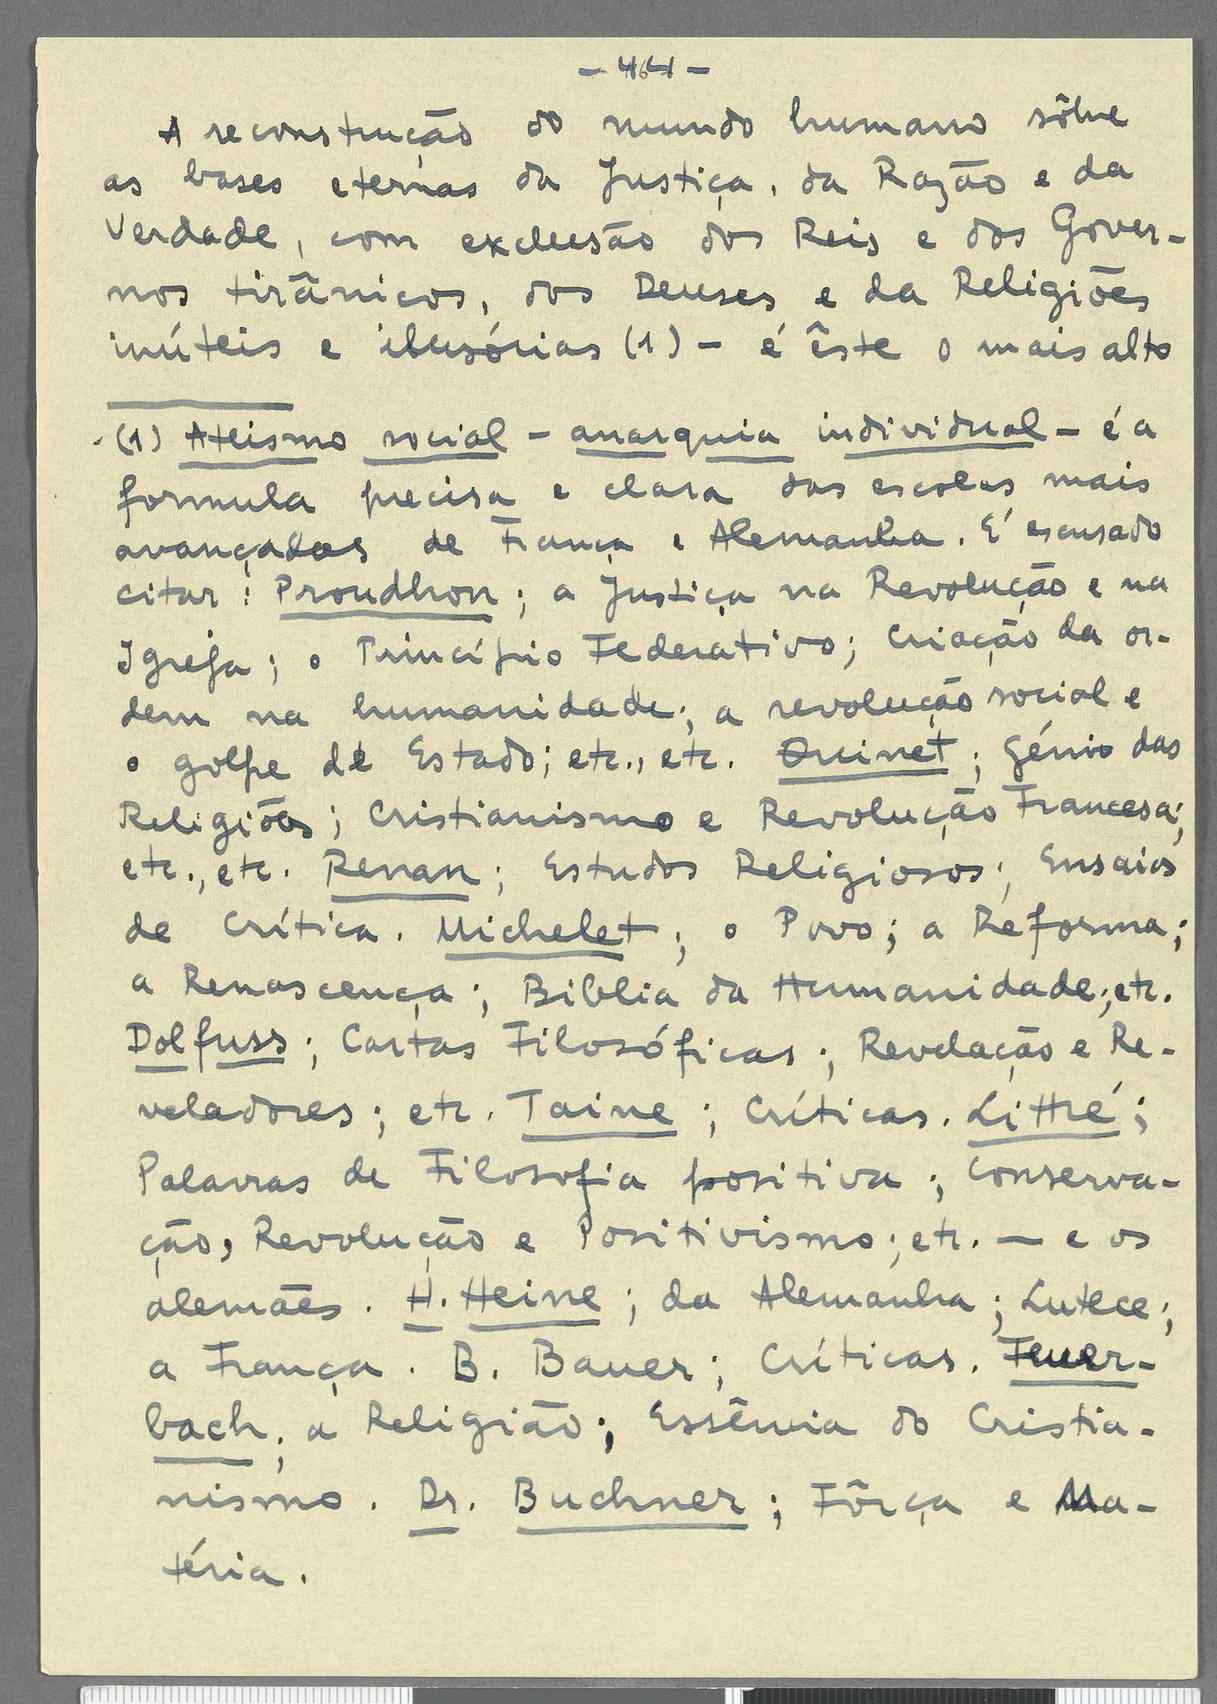 - 464 -
A reconstrução do mundo humano sôbre
as bases eternas da Justiça, da Razão e da
Verdade, com exclusão dos Reis e dos Gover-
nos tirânicos, dos Deuses e da Religiões
inúteis e ilusórias (1) - é êste o mais alto
(1) Ateismo social - anarquia individual - é a
formula precisa e clara das escolas mais
avançadas de França e Alemanha. É escusado
citar: Proudhon; a Justiça na Revolução e na
Igreja; o Princípio Federativo; Criação da or-
dem na humanidade; a revolução social e
o golpe de Estado; etc., etc. Quinet; Génio das
Religiões; Cristianismo e Revolução Francesa;
etc., etc. Renan; Estudos Religiosos; Ensaios
de Crítica. Michelet; o Povo; a Reforma;
a Renascença; Biblia da Humanidade; etc.
Dolfuss; Cartas Filosóficas; Revelação e Re-
veladores; etc. Taine; Críticas. Littré;
Palavras de Filosofia positiva; Conserva-
ção, Revolução e Positivismo; etc. — e os
alemães. H. Heine; da Alemanha; Lutece;
a França. B. Bauer; Críticas. Feuer-
bach; a Religião; Essência do Cristia-
nismo. Dr. Buchner; Fôrça e Ma-
téria.